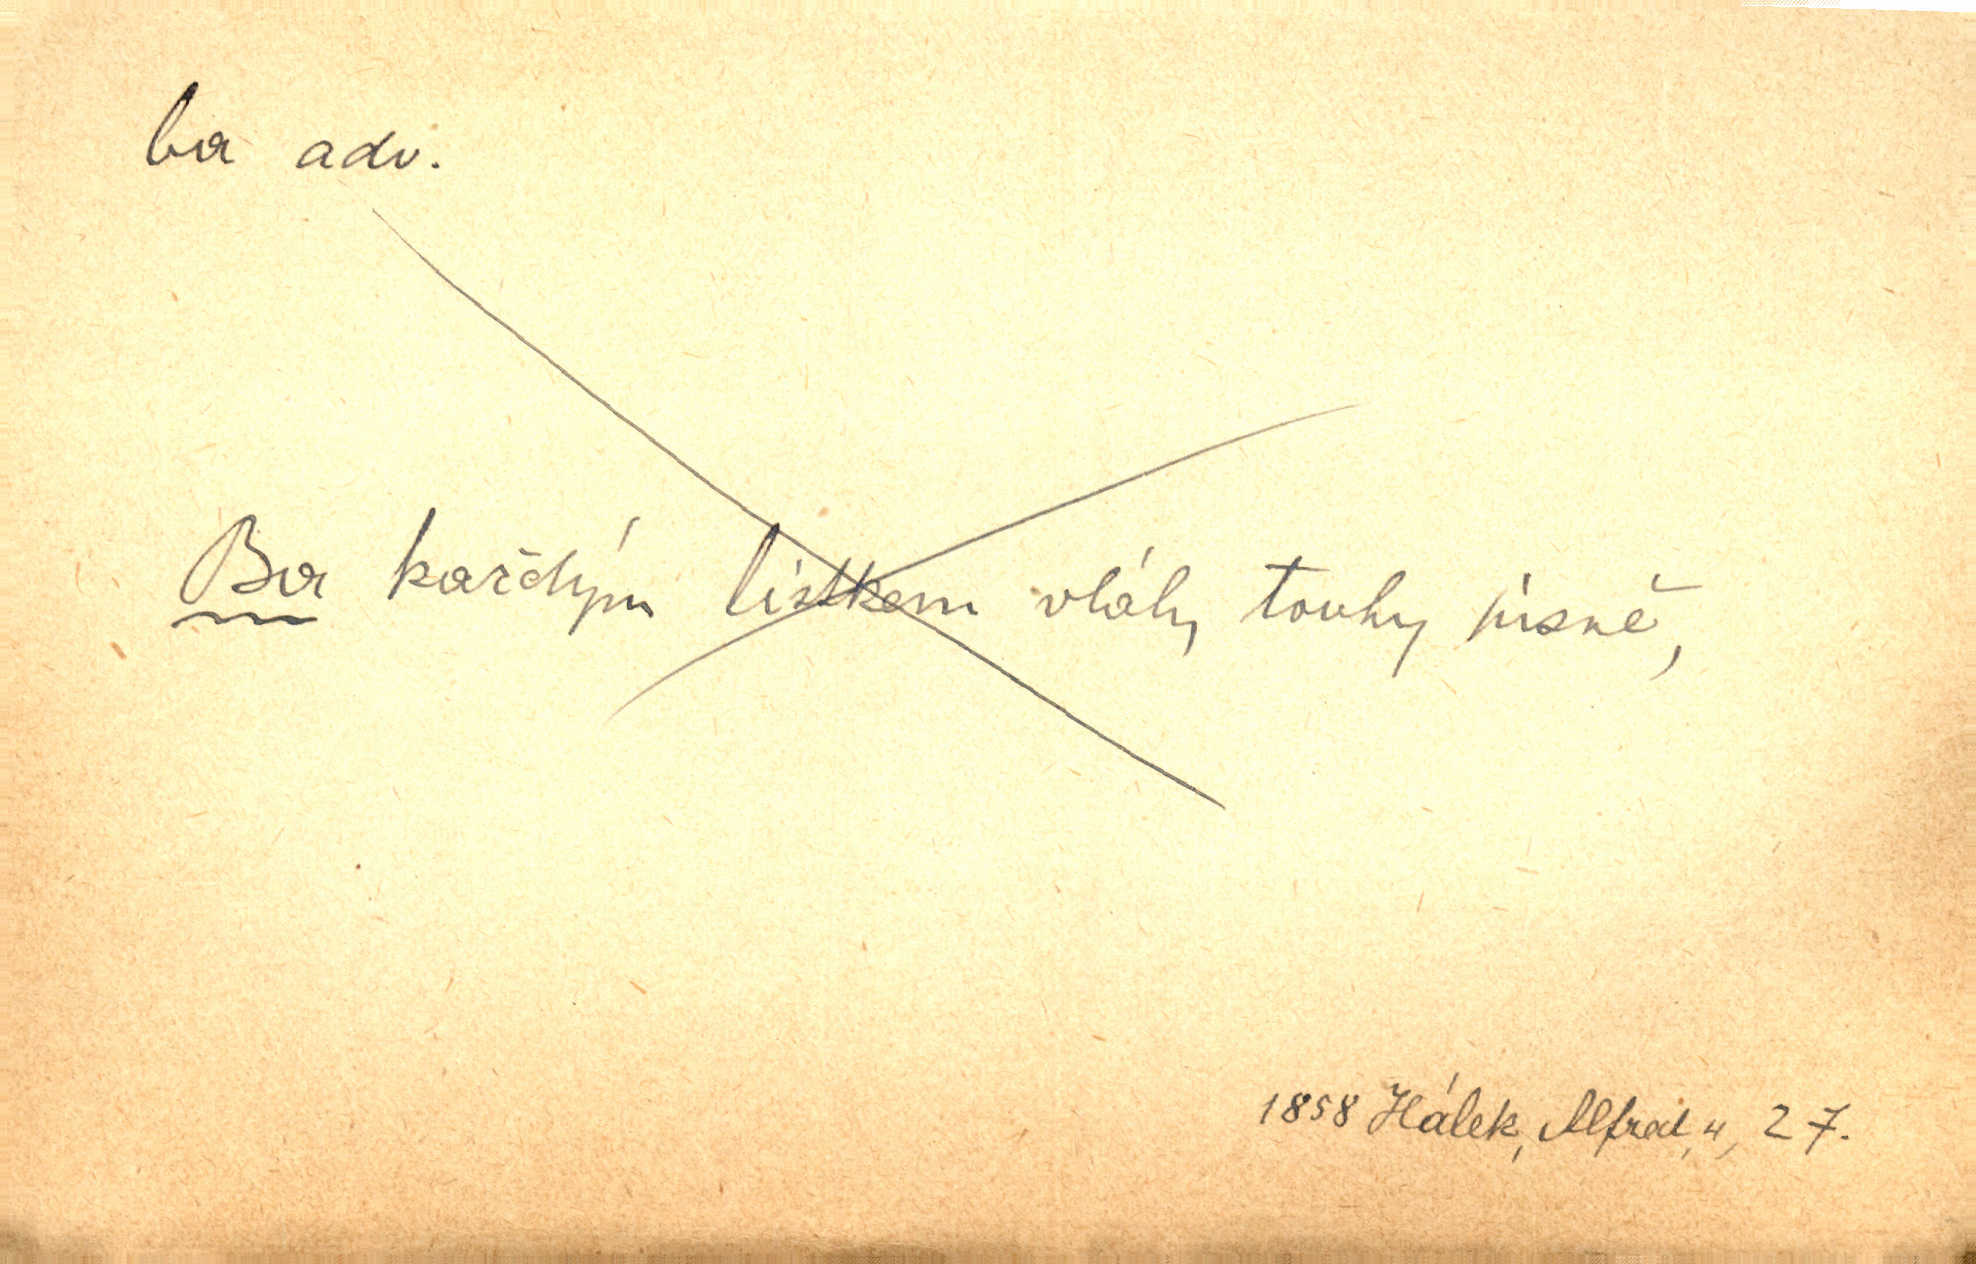 ba adv.
Ba každým lístkem vlály touhy písně,
1858 Hálek, Alfred, 4, 27.